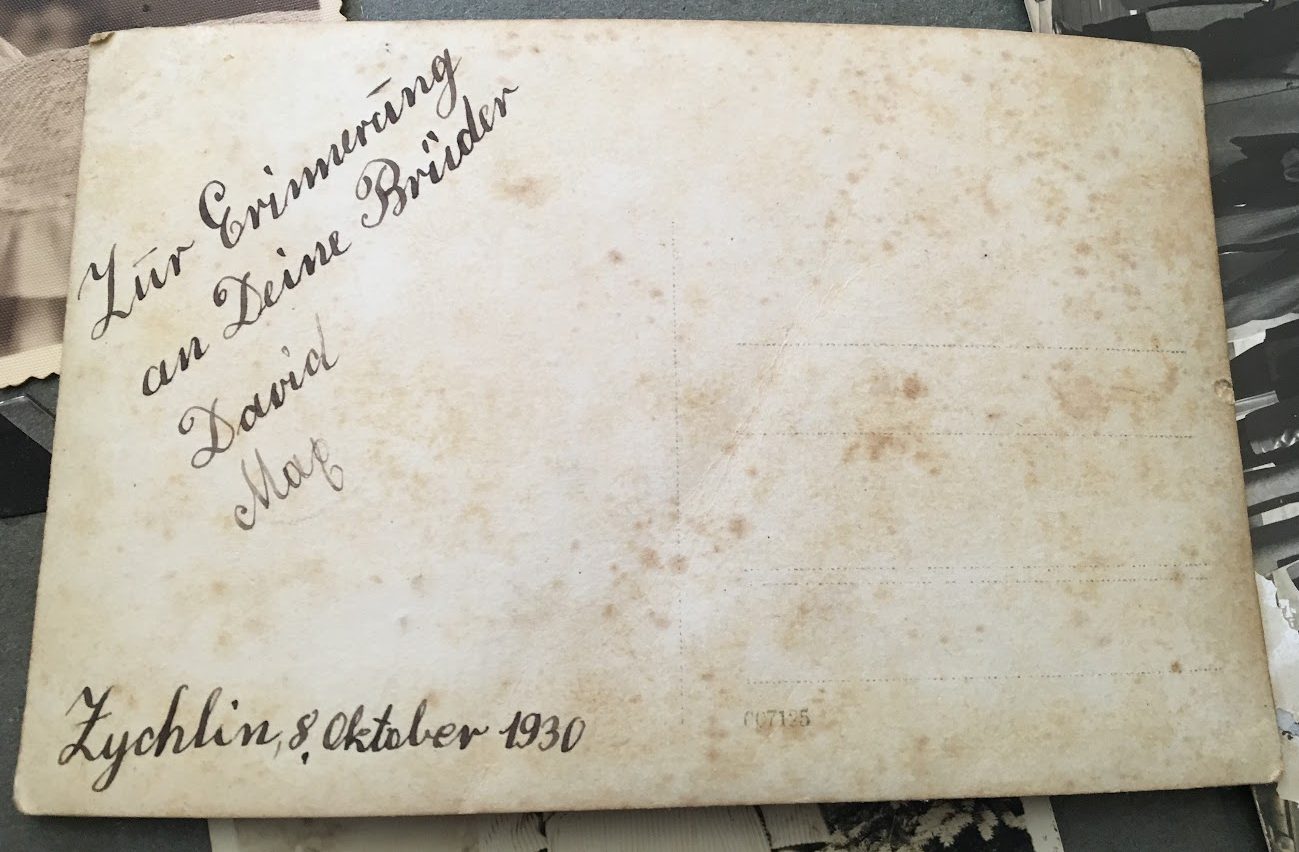 Zur Erinnerung
an Deine Brüder
David
Max
Zychlin, 8. Oktober 1930
007125